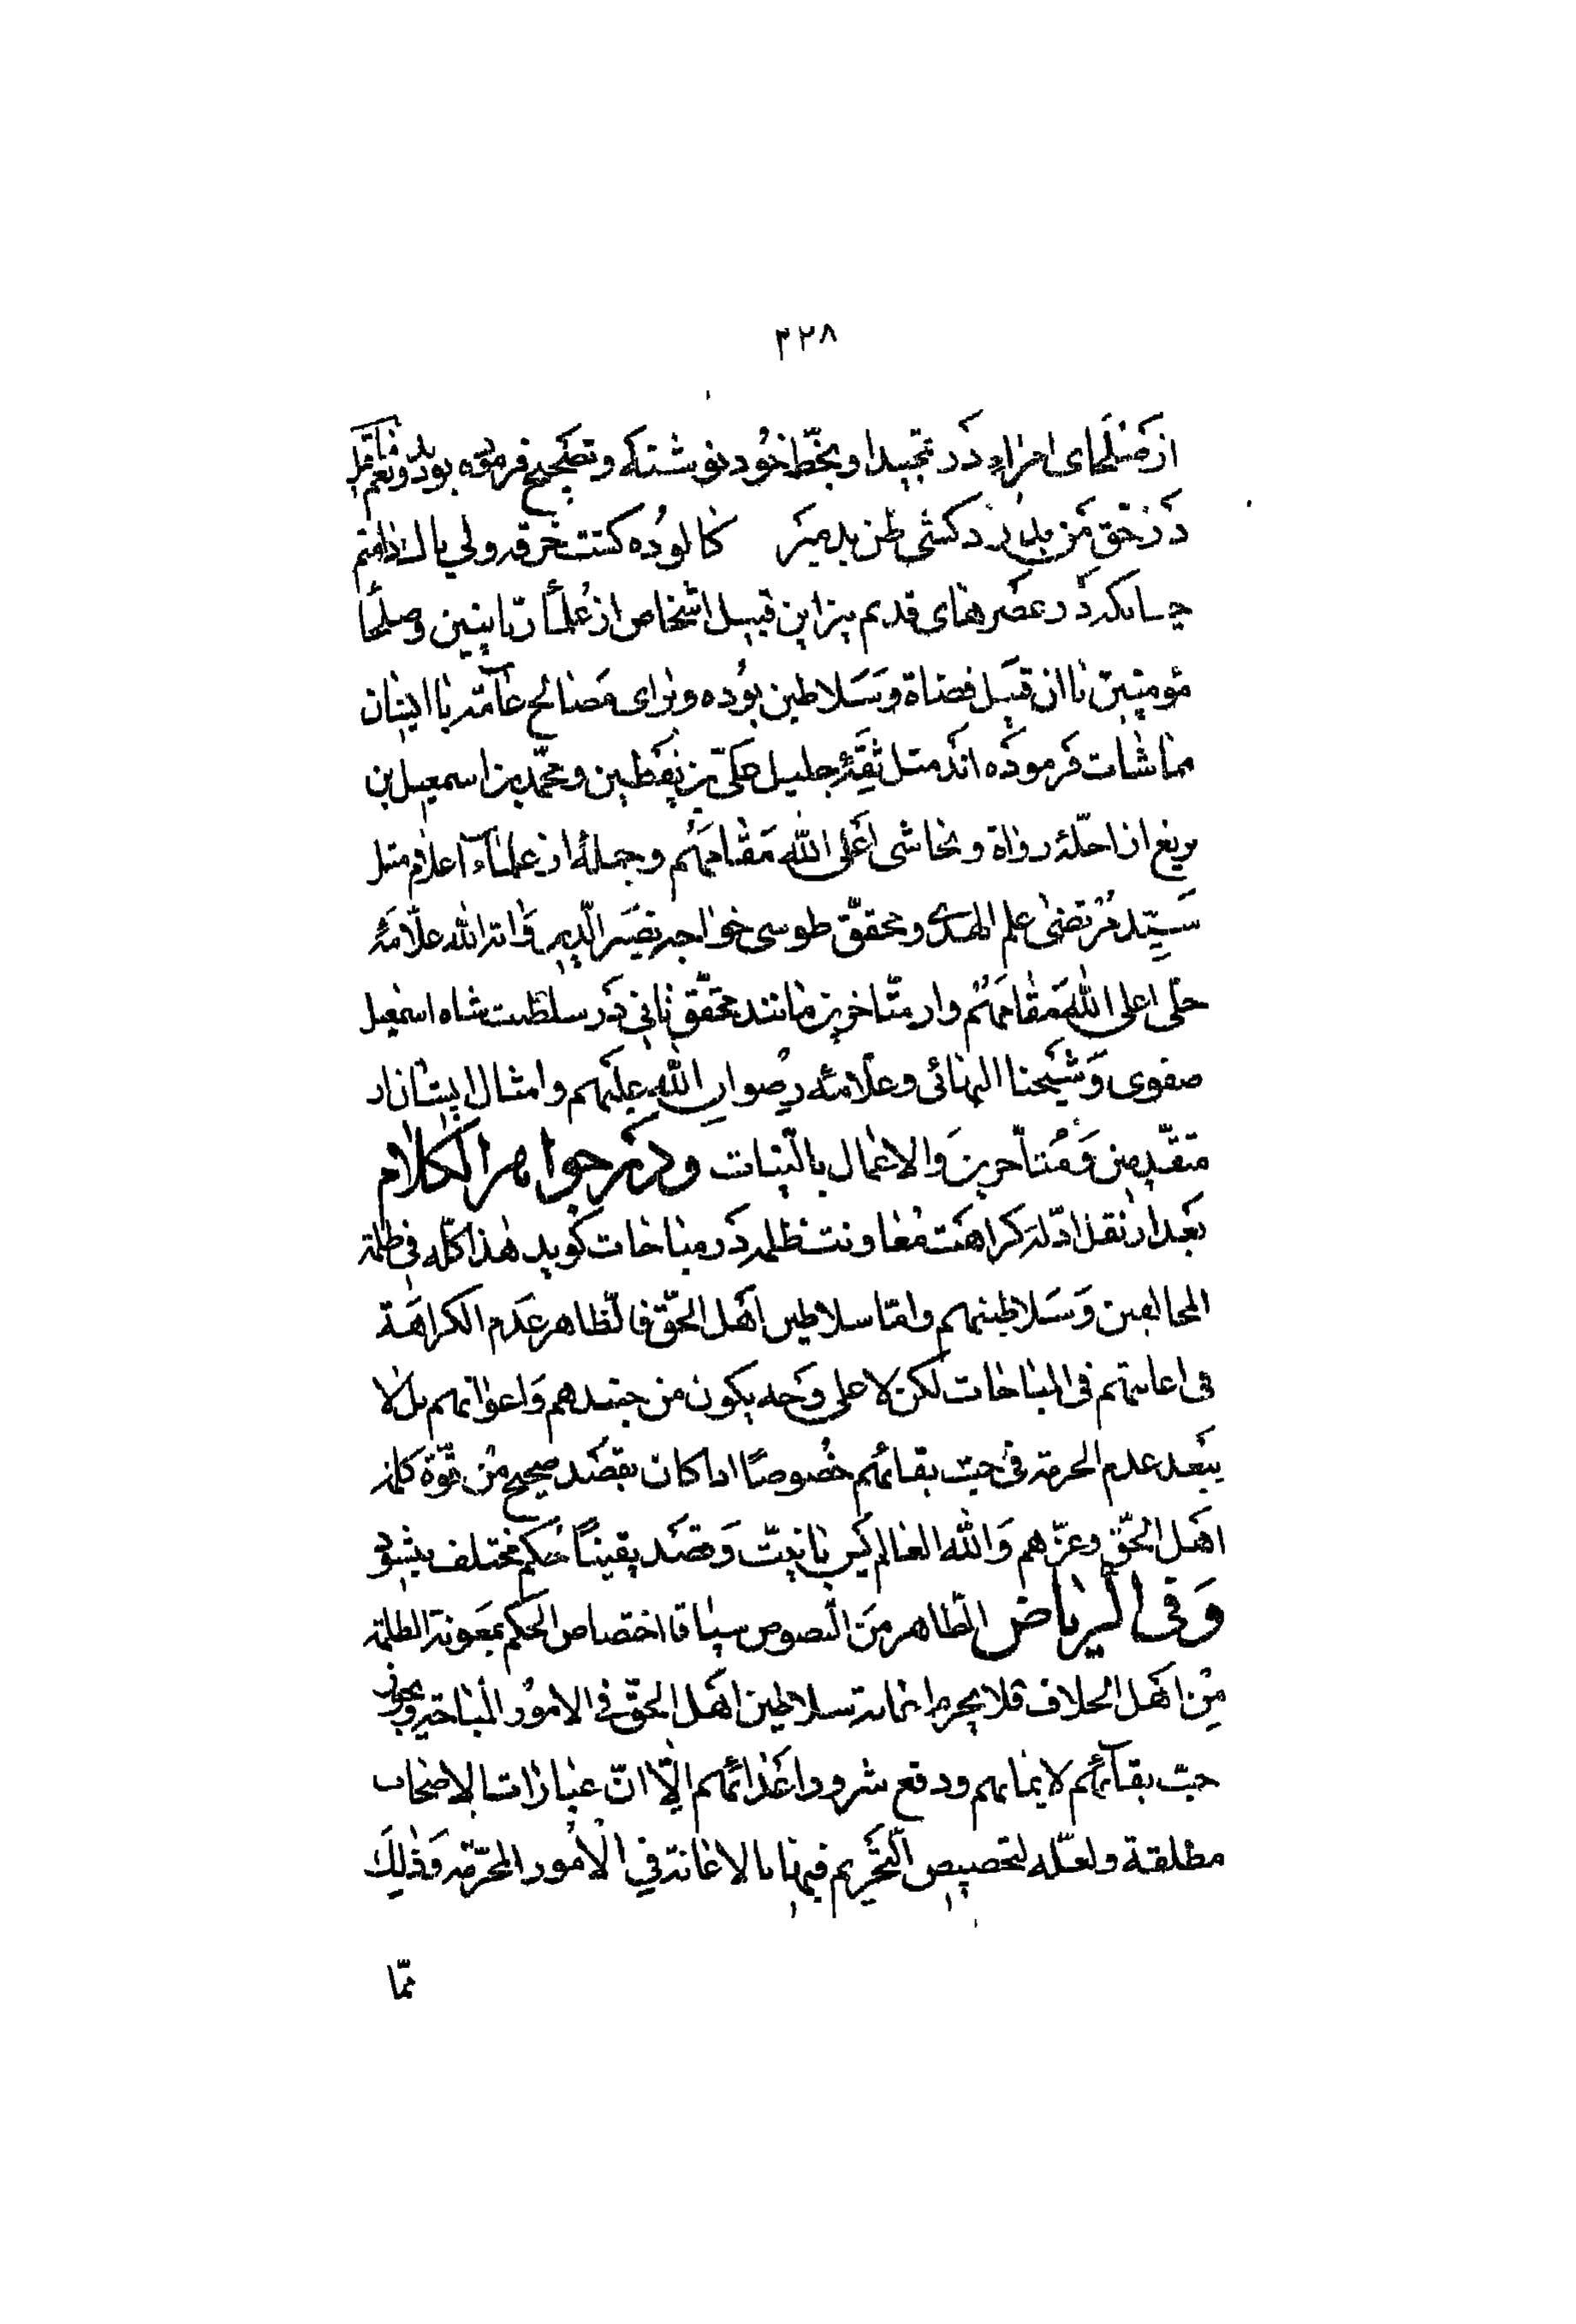 ۳۲۸
از صلحای امراء در تمجید او بخطّ خود نوشته و تصحیح فرموده بودند و نعم ما قیل
در حق من بدرد کشی ظن بد مبر کالوده گشت خرقه ولی پاک دامنم
چنانکه در عصرهای قدیم نیز این قبیل اشخاص از علماء ربانیین و صلحا
مؤمنین با آن قبیل قضاة و سلاطین بوده و برای مصالح عامّه با ایشان
مماشات فرموده اند مثل ثقهٔ جلیل علیّ بن یقطین و محمّد بن اسمعیل بن
بزیع از اجلّهٔ رواة و نجاشی اعلی الله مقامهم و جملهٔ از علماء اعلام مثل
سیّد مرتضی علم الهدی و محقّق طوسی خواجه نصیر الدین و آیة الله علّامهٔ
حلی اعلی الله مقامهم و از متأخرین مانند محقّق ثانی در سلطنت شاه اسمعیل
صفوی و شیخنا البهائی و علامه رضوان الله علیهم و امثال ایشان از
متقدّمین و متأخرین و الاعمال بالنّیات و در جواهر الکلام
بعد از نقل ادّله کراهت معاونت ظلمه در مباحات گوید هذا کلّه فی ظلمة
المخالفین و سلاطینهم و امّا سلاطین اهل الحقّ فالظاهر عدم الکراهة
فی اعانتهم فی المباحات لکن لا علی وجه یکون من جندهم و اعوانهم بل لا
یبعد عدم الحرمة فی حبّ بقائهم خصوصًا اذا کان بقصد صحیح من قوّة کلمة
اهل الحقّ و عزّهم و الله العالم پس با نیّت و قصد یقینًا حکم مختلف میشود
و فی الریاض الظاهر من النصوص سیاقا اختصاص الحکم بمعونة الظلمة
من اهل الخلاف فلا یحرم اعانة سلاطین اهل الحقّ فی الامور المباحة و یجوز
حبّ بقائهم لایمانهم و دفع شرور اعدائهم الّا انّ عبارات الاصحاب
مطلقة و لعلّه لتخصیص التحریم فیها بالاعانة فی الأمور المحرّمة و ذلک
ممّا